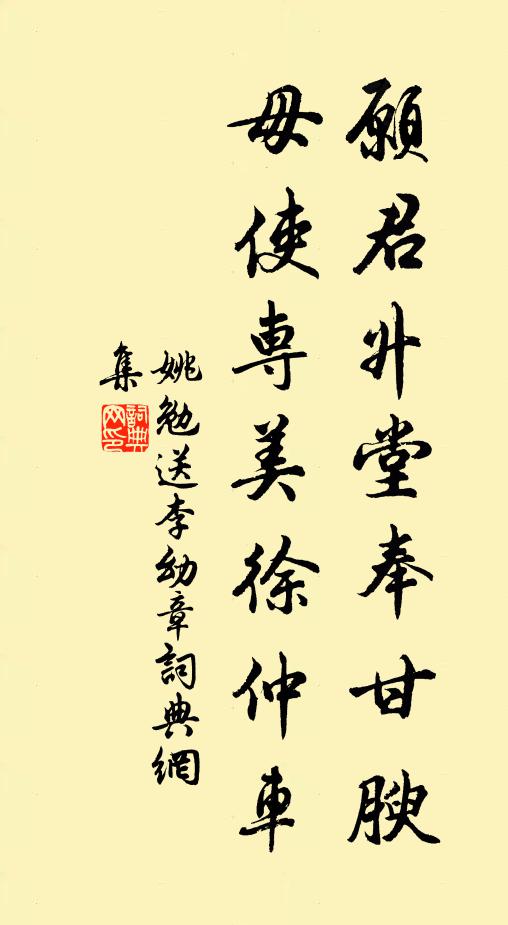 願君升堂奉甘腴
毋使專美徐仲車
姚勉送李幼章詞典網
集
詞典
网印